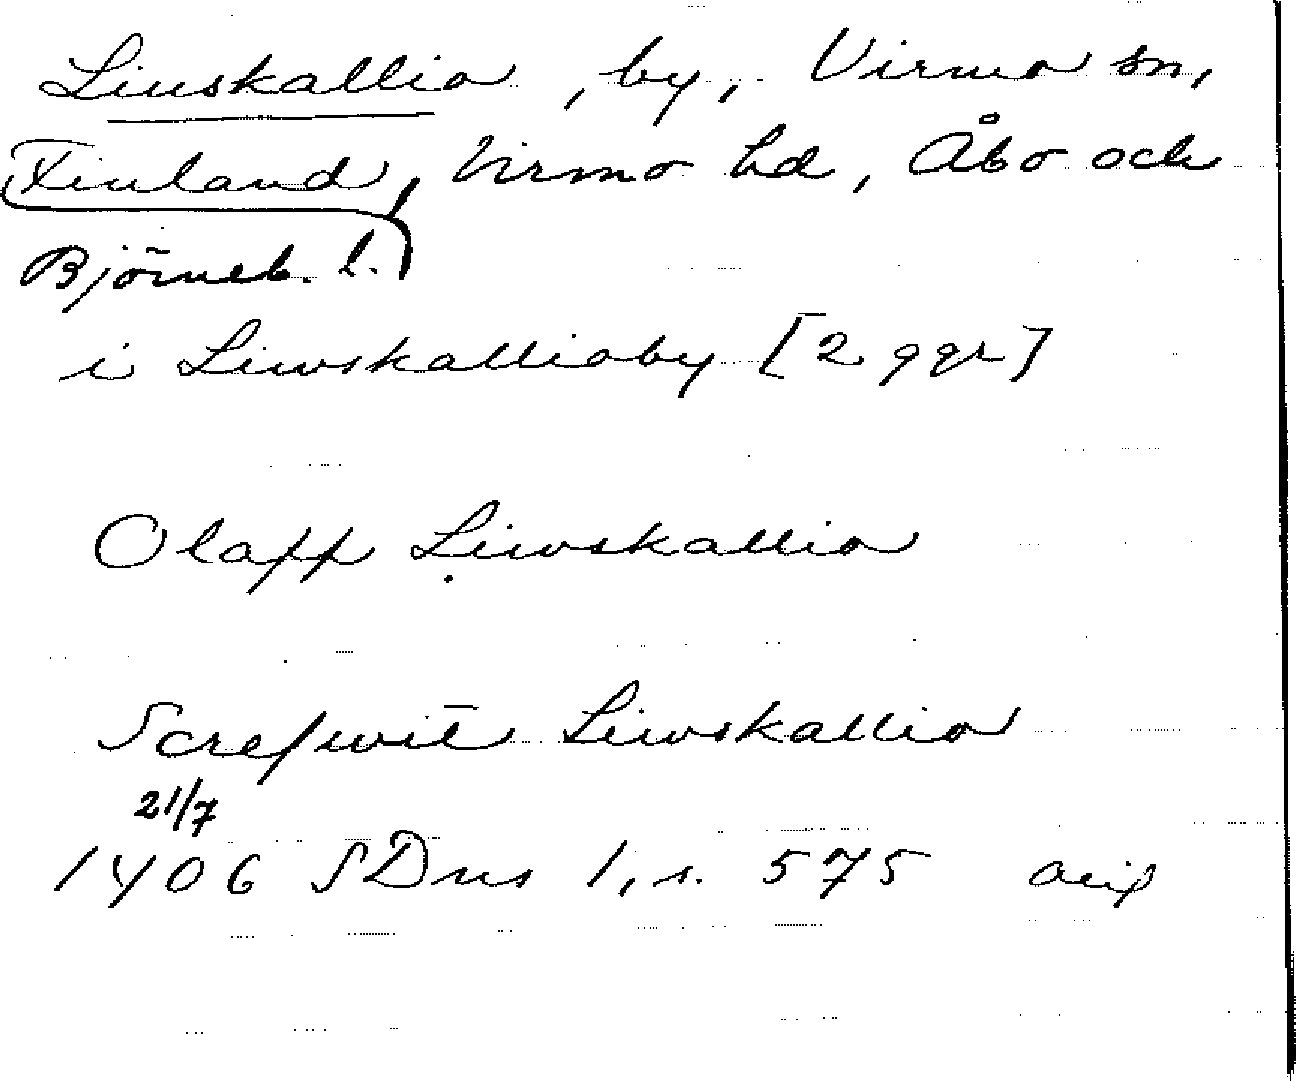 Liuskallio, by, Virmo sn,
Finland, Virmo hd, Åbo och
Björneb. l.
i Liwskallioby [2 ggr]
Olapp Liwskallio
Screfwit Liwskallio
21/7
1406 SDns 1, s. 575